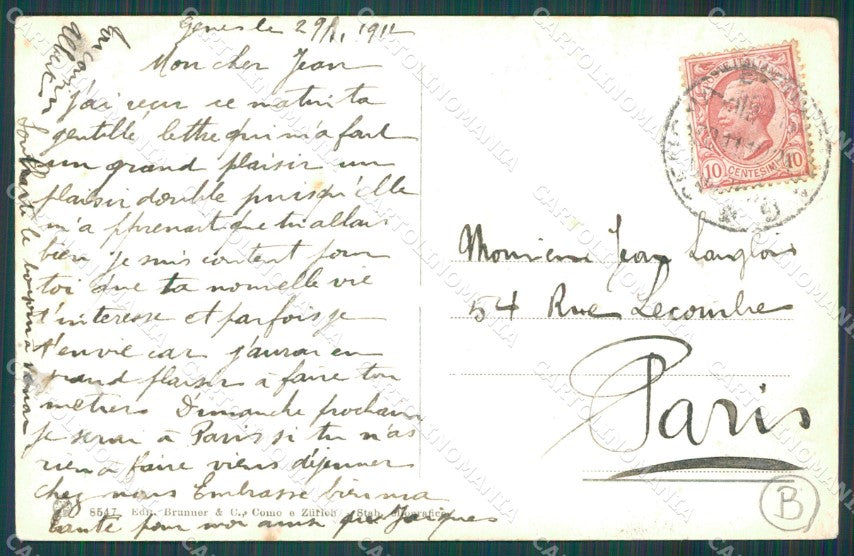 Gênes le 29 1912
Mon cher Jean
j'ai reçu ce matin ta
gentille lettre qui m'a fait
un grand plaisir un
plaisir double puisqu'elle
m'apprenait que tu allais
bien je suis content pour
toi que ta nouvelle vie
t'intéresse et parfois je
t'envie car j'aurai eu
grand plaisir à faire ton
métier. Dimanche prochain
je serai à Paris si tu n'as
rien à faire viens déjeuner
chez nous Embrasse bien ma
tante pour moi ainsi que Jacques
10 CENTESIMI 10
Monsieur Jean Langlois
54 Rue Lecombe
Paris
B
8547 Edit. Brunner & C., Como e Zürich - Stab. tipografico
CARTOLINOMANIA